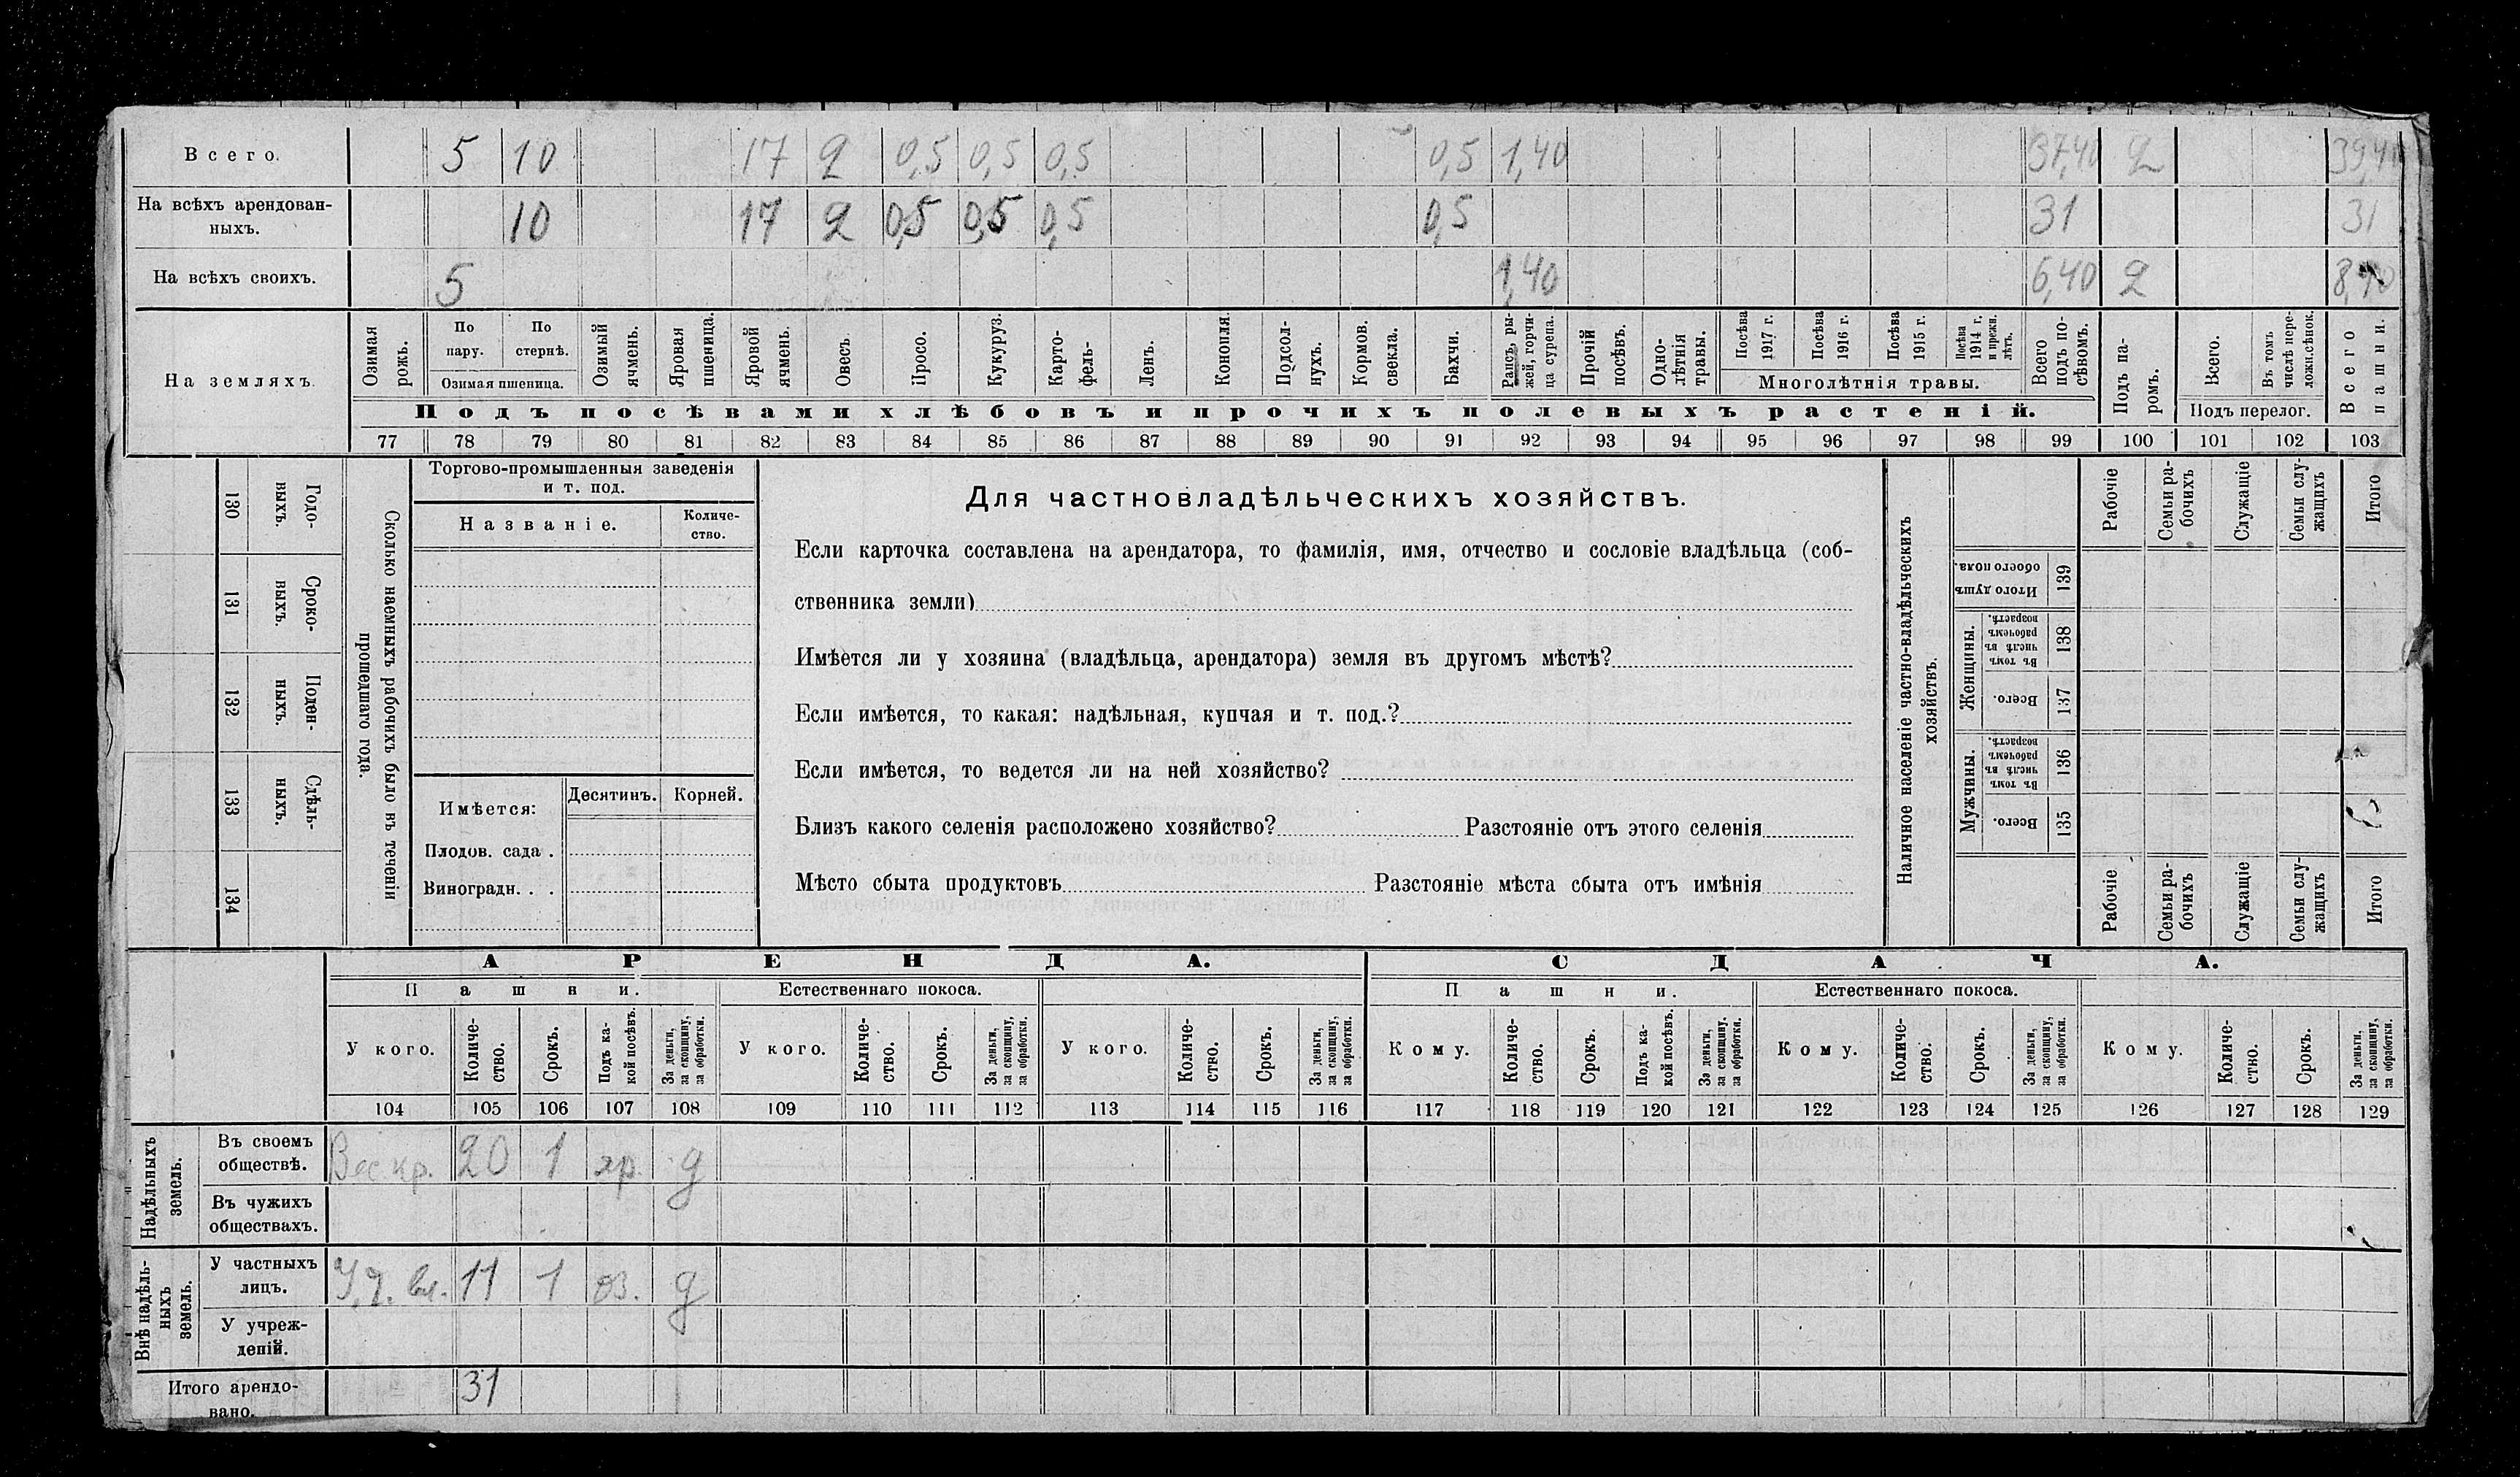 Всего. 5 10 17 2 0,5 0,5 0,5 0,5 1,40 37,40 2 39,40
На всѣхъ арендован-
ныхъ. 10 17 2 0,5 0,5 0,5 0,5 31 31
На всѣхъ своихъ. 5 1,40 6,40 2 8,40
На земляхъ.
Озимая рожь.
По пару.
По стернѣ.
Озимая пшеница.
Озимый ячмень.
Яровая пшеница.
Яровой ячмень.
Овесъ.
Просо.
Кукуруз.
Карто-
фель.
Ленъ.
Конопля.
Подсол-
нухъ.
Кормов.
свекла.
Бахчи.
Рапсъ, ры-
жей, горчи-
ца сурепа.
Прочій
посѣвъ.
Одно-
лѣтнія
травы.
Посѣва
1917 г.
Посѣва
1916 г.
Посѣва
1915 г.
Посѣва
1914 г.
и прежн.
лѣтъ.
Многолѣтнія травы.
Всего
подъ по-
сѣвомъ.
Подъ па-
ромъ.
Всего.
Въ томъ
числѣ пере-
ложн.сѣнок.
Подъ перелог.
Всего
пашни.
Подъ посѣвами хлѣбовъ и прочихъ полевыхъ растеній.
77 78 79 80 81 82 83 84 85 86 87 88 89 90 91 92 93 94 95 96 97 98 99 100 101 102 103
130 Годо-
выхъ.
131 Сроко-
выхъ.
132 Поден-
ныхъ.
133 Сдѣль-
ныхъ.
134
Сколько наемныхъ рабочихъ было въ теченіи
прошедшаго года.
Торгово-промышленныя заведенія
и т. под.
Названіе.
Количе-
ство.
Имѣется:
Десятинъ.
Корней.
Плодов. сада .
Виноградн. . .
Для частновладѣльческихъ хозяйствъ.
Если карточка составлена на арендатора, то фамилія, имя, отчество и сословіе владѣльца (соб-
ственника земли)
Имѣется ли у хозяина (владѣльца, арендатора) земля въ другомъ мѣстѣ?
Если имѣется, то какая: надѣльная, купчая и т. под.?
Если имѣется, то ведется ли на ней хозяйство?
Близъ какого селенія расположено хозяйство? Разстояніе отъ этого селенія
Мѣсто сбыта продуктовъ Разстояніе мѣста сбыта отъ имѣнія
Наличное населеніе частно-владѣльческихъ
хозяйствъ.
Рабочіе
Семьи ра-
бочихъ
Служащіе
Семьи слу-
жащихъ
Итого
Итого душъ
обоего пола. 139
Женщины.
Въ томъ
числѣ въ
рабочемъ
возрастѣ. 138
Всего. 137
Мужчины.
Въ томъ
числѣ въ
рабочемъ
возрастѣ. 136
Всего. 135
Рабочіе
Семьи ра-
бочихъ
Служащіе
Семьи слу-
жащихъ
Итого
АРЕНДА. СДАЧА.
Пашни. Естественнаго покоса. Пашни. Естественнаго покоса.
У кого.
Количе-
ство.
Срокъ.
Подъ ка-
кой посѣвъ.
За деньги,
за скопщину,
за обработки.
У кого.
Количе-
ство.
Срокъ.
За деньги,
за скопщину,
за обработки.
У кого.
Количе-
ство.
Срокъ.
За деньги,
за скопщину,
за обработки.
Кому.
Количе-
ство.
Срокъ.
Подъ ка-
кой посѣвъ.
За деньги,
за скопщину.
за обработки.
Кому.
Количе-
ство.
Срокъ.
За деньги,
за скопщину,
за обработки.
Кому.
Количе-
ство.
Срокъ.
За деньги,
за скопщину,
за обработки.
104 105 106 107 108 109 110 111 112 113 114 115 116 117 118 119 120 121 122 123 124 125 126 127 128 129
Надѣльныхъ
земель.
Въ своемъ
обществѣ. Воскр. 20 1 яр. д
Въ чужихъ
обществахъ.
Внѣ надѣль-
ныхъ
земель.
У частныхъ
лицъ. 11 1 оз. д
У учреж-
деній.
Итого арендо-
вано. 31